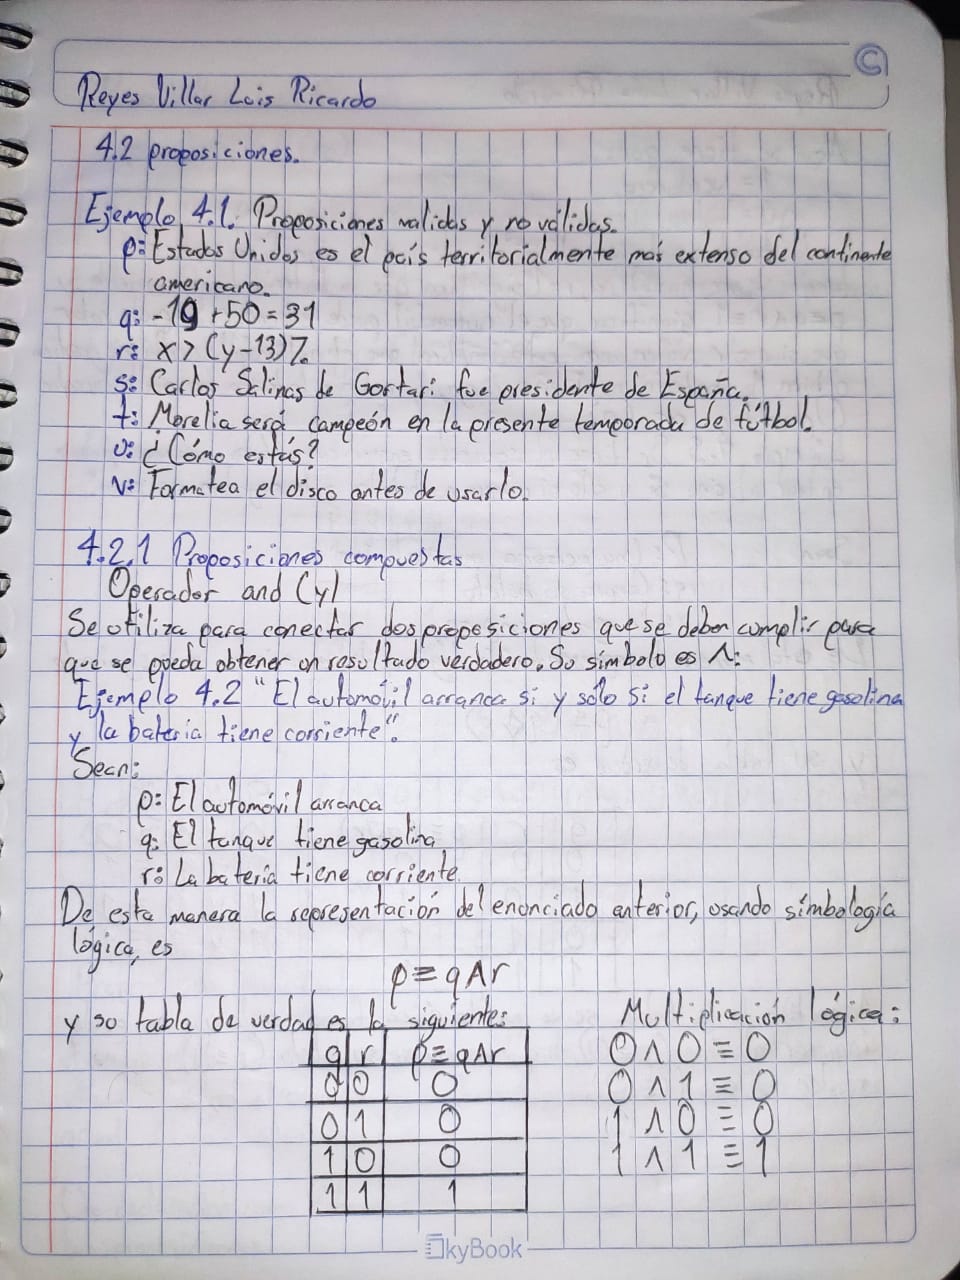 Reyes Villar Luis Ricardo
4.2 proposiciones.
Ejemplo 4.1. Proposiciones validas y no válidas.
p: Estados Unidos es el país territorialmente más extenso del continente
americano.
q: -19 +50 = 31
r: x > (y-13)7.
s: Carlos Salinas de Gortari fue presidente de España.
t: Morelia será campeón en la presente temporada de fútbol.
u: ¿Cómo estás?
v: Formatea el disco antes de usarlo.
4.2.1 Proposiciones compuestas
Operador and (y)
Se utiliza para conectar dos proposiciones que se deben cumplir para
que se pueda obtener un resultado verdadero. Su símbolo es Λ:
Ejemplo 4.2 "El automóvil arranca si y sólo si el tanque tiene gasolina
y la batería tiene corriente".
Sean:
p: El automóvil arranca
q: El tanque tiene gasolina
r: La batería tiene corriente.
De esta manera la representación del enunciado anterior, usando simbología
lógica, es
p ≡ q Λ r
y su tabla de verdad es la siguiente: Multiplicación lógica:
q r p ≡ q Λ r 0 Λ 0 ≡ 0
0 0 0 0 Λ 1 ≡ 0
0 1 0 1 Λ 0 ≡ 0
1 0 0 1 Λ 1 ≡ 1
1 1 1
SkyBook